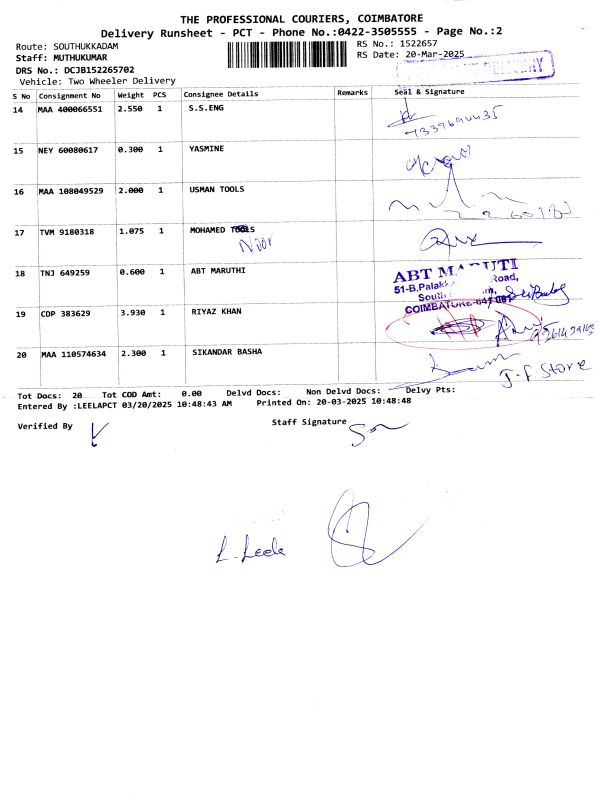 THE PROFESSIONAL COURIERS, COIMBATORE
Delivery Runsheet - PCT - Phone No.:0422-3505555 - Page No.:2
Route: SOUTHUKKADAM RS No.: 1522657
Staff: MUTHUKUMAR RS Date: 20-Mar-2025
DRS No.: DCJB152265702
Vehicle: Two Wheeler Delivery DELIVERY
S No Consignment No Weight PCS Consignee Details Remarks Seal & Signature
14 MAA 400066551 2.550 1 S.S.ENG
15 NEY 60080617 0.300 1 YASMINE
16 MAA 108049529 2.000 1 USMAN TOOLS
17 TVM 9180318 1.075 1 MOHAMED TOOLS
Noor
18 TNJ 649259 0.600 1 ABT MARUTHI
ABT MARUTI
51-B,Palakk Road,
South
COIMBATORE-641
19 CDP 383629 3.930 1 RIYAZ KHAN
20 MAA 110574634 2.300 1 SIKANDAR BASHA
J.F Store
Tot Docs: 20 Tot COD Amt: 0.00 Delvd Docs: Non Delvd Docs: Delvy Pts:
Entered By :LEELAPCT 03/20/2025 10:48:43 AM Printed On: 20-03-2025 10:48:48
Verified By Staff Signature
L. Leela